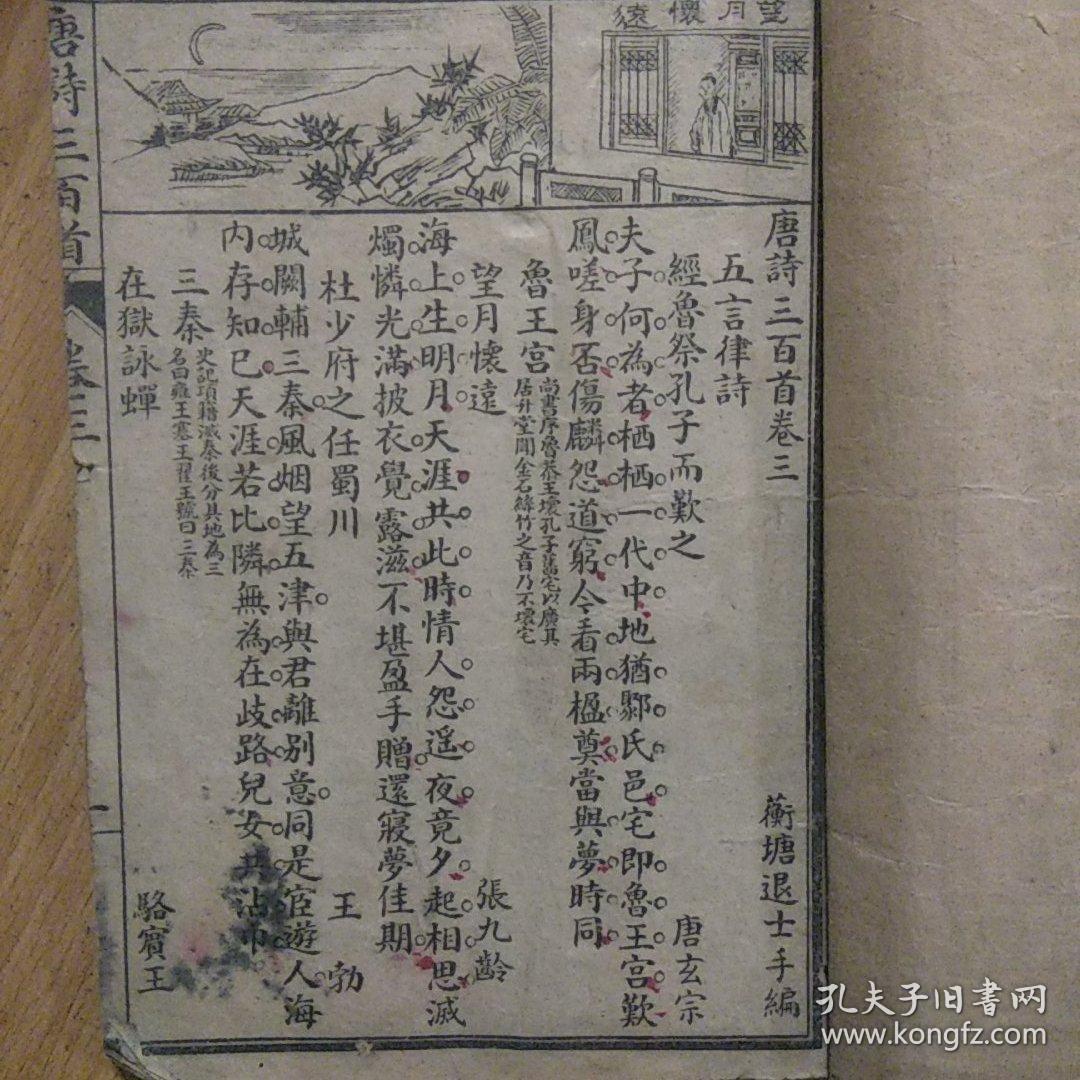 望月懷遠
唐詩三百首卷三
蘅塘退士手編
五言律詩
經魯祭孔子而歎之
唐玄宗
夫子何為者栖栖一代中地猶鄹氏邑宅即魯王宮歎
鳳嗟身否傷麟怨道窮今看兩楹奠當與夢時同
魯王宮
尚書序魯恭王壞孔子舊宅以廣其
居升堂聞金石絲竹之音乃不壞宅
望月懷遠
張九齡
海上生明月天涯共此時情人怨遥夜竟夕起相思滅
燭憐光滿披衣覺露滋不堪盈手贈還寢夢佳期
杜少府之任蜀川
王勃
城闕輔三秦風烟望五津與君離別意同是宦遊人海
內存知己天涯若比隣無為在歧路兒女共沾巾
三秦
史記項籍滅秦後分其地為三
名曰雍王塞王翟王號曰三秦
在獄詠蟬
駱賓王
唐詩三百首
卷三
一
孔夫子旧书网
www.kongfz.com